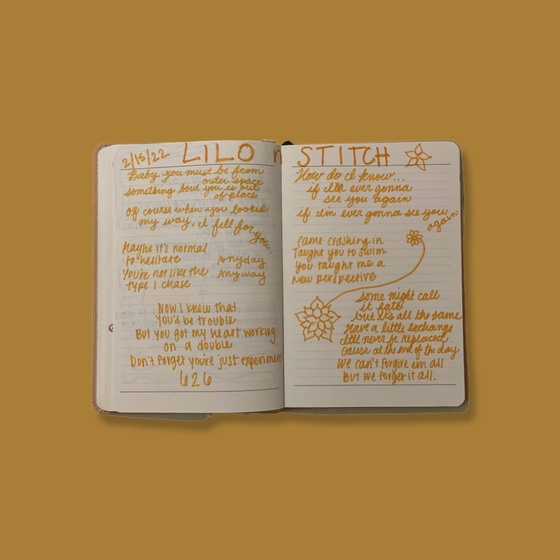 2/15/22 LILO n STITCH
Baby you must be from
outer space
something bout you is out
of place
Of course when you looked
my way, i'd fell for
you.
Maybe it's normal
to hesitate Anyday
You're not like the Anyway
type I chase
Now I knew that
You'd be trouble
But you got my heart working
on a double
Don't forget you're just experiment
626
How do I know...
if i'll ever gonna
see you again
if i'm ever gonna see you
again
Came crashing in
Taught you to swim
You taught me a
New perspective
some might call
it fate
but it's all the same
Have a little exchange
i'll never be replaced
Cause at the end of the day
We can't forgive em all
But We forget it all.